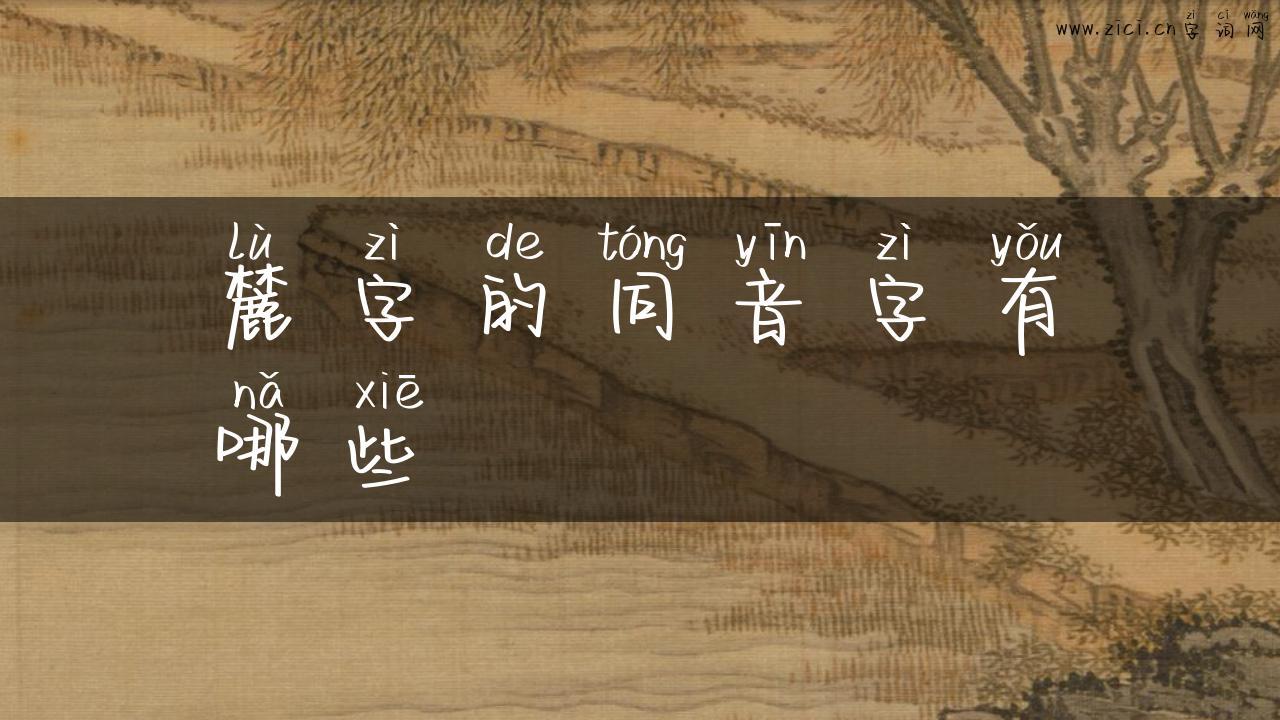 zì cí wǎng
www.zici.cn字词网
lù zì de tóng yīn zì yǒu
麓字的同音字有
nǎ xiē
哪些